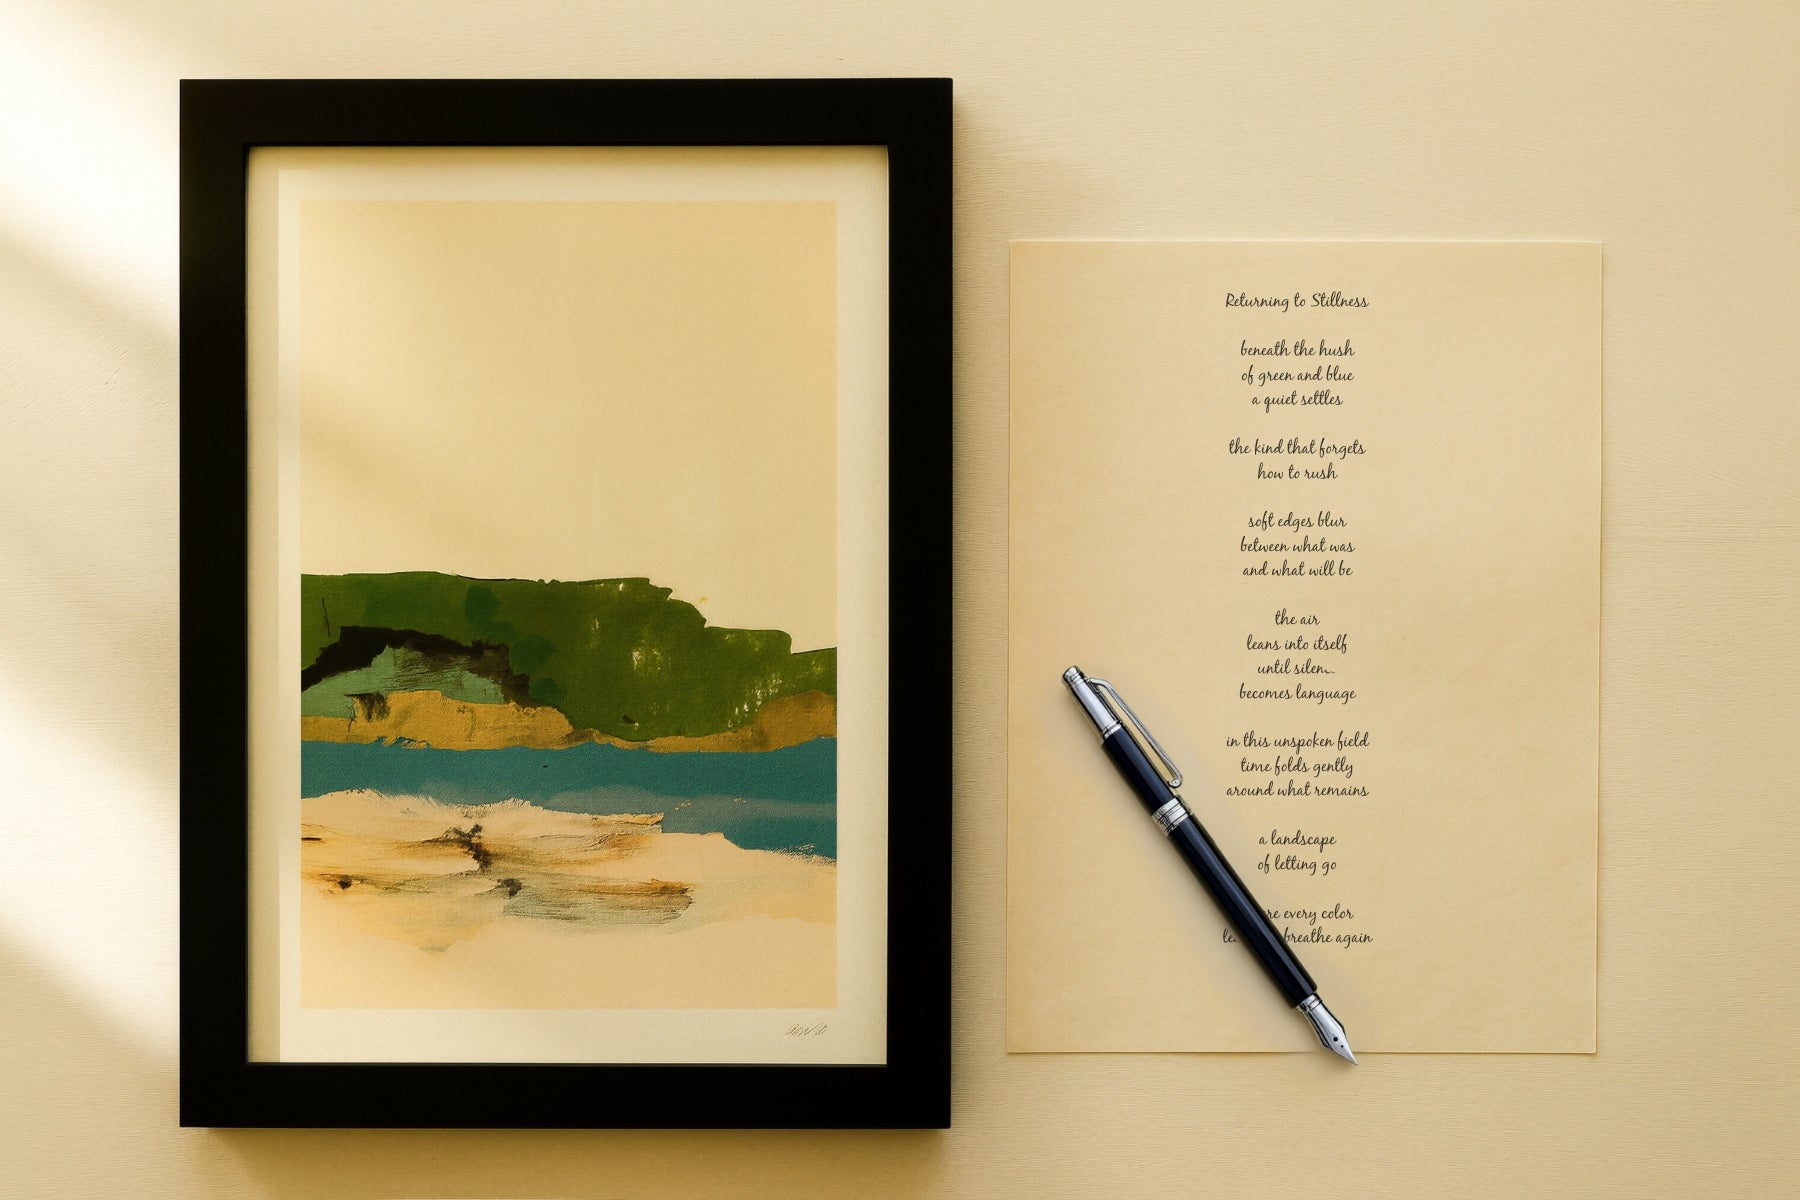 Returning to Stillness
beneath the hush
of green and blue
a quiet settles
the kind that forgets
how to rush
soft edges blur
between what was
and what will be
the air
leans into itself
until
becomes language
in this unspoken field
time folds gently
around what remains
a landscape
of letting go
every color
breathe again